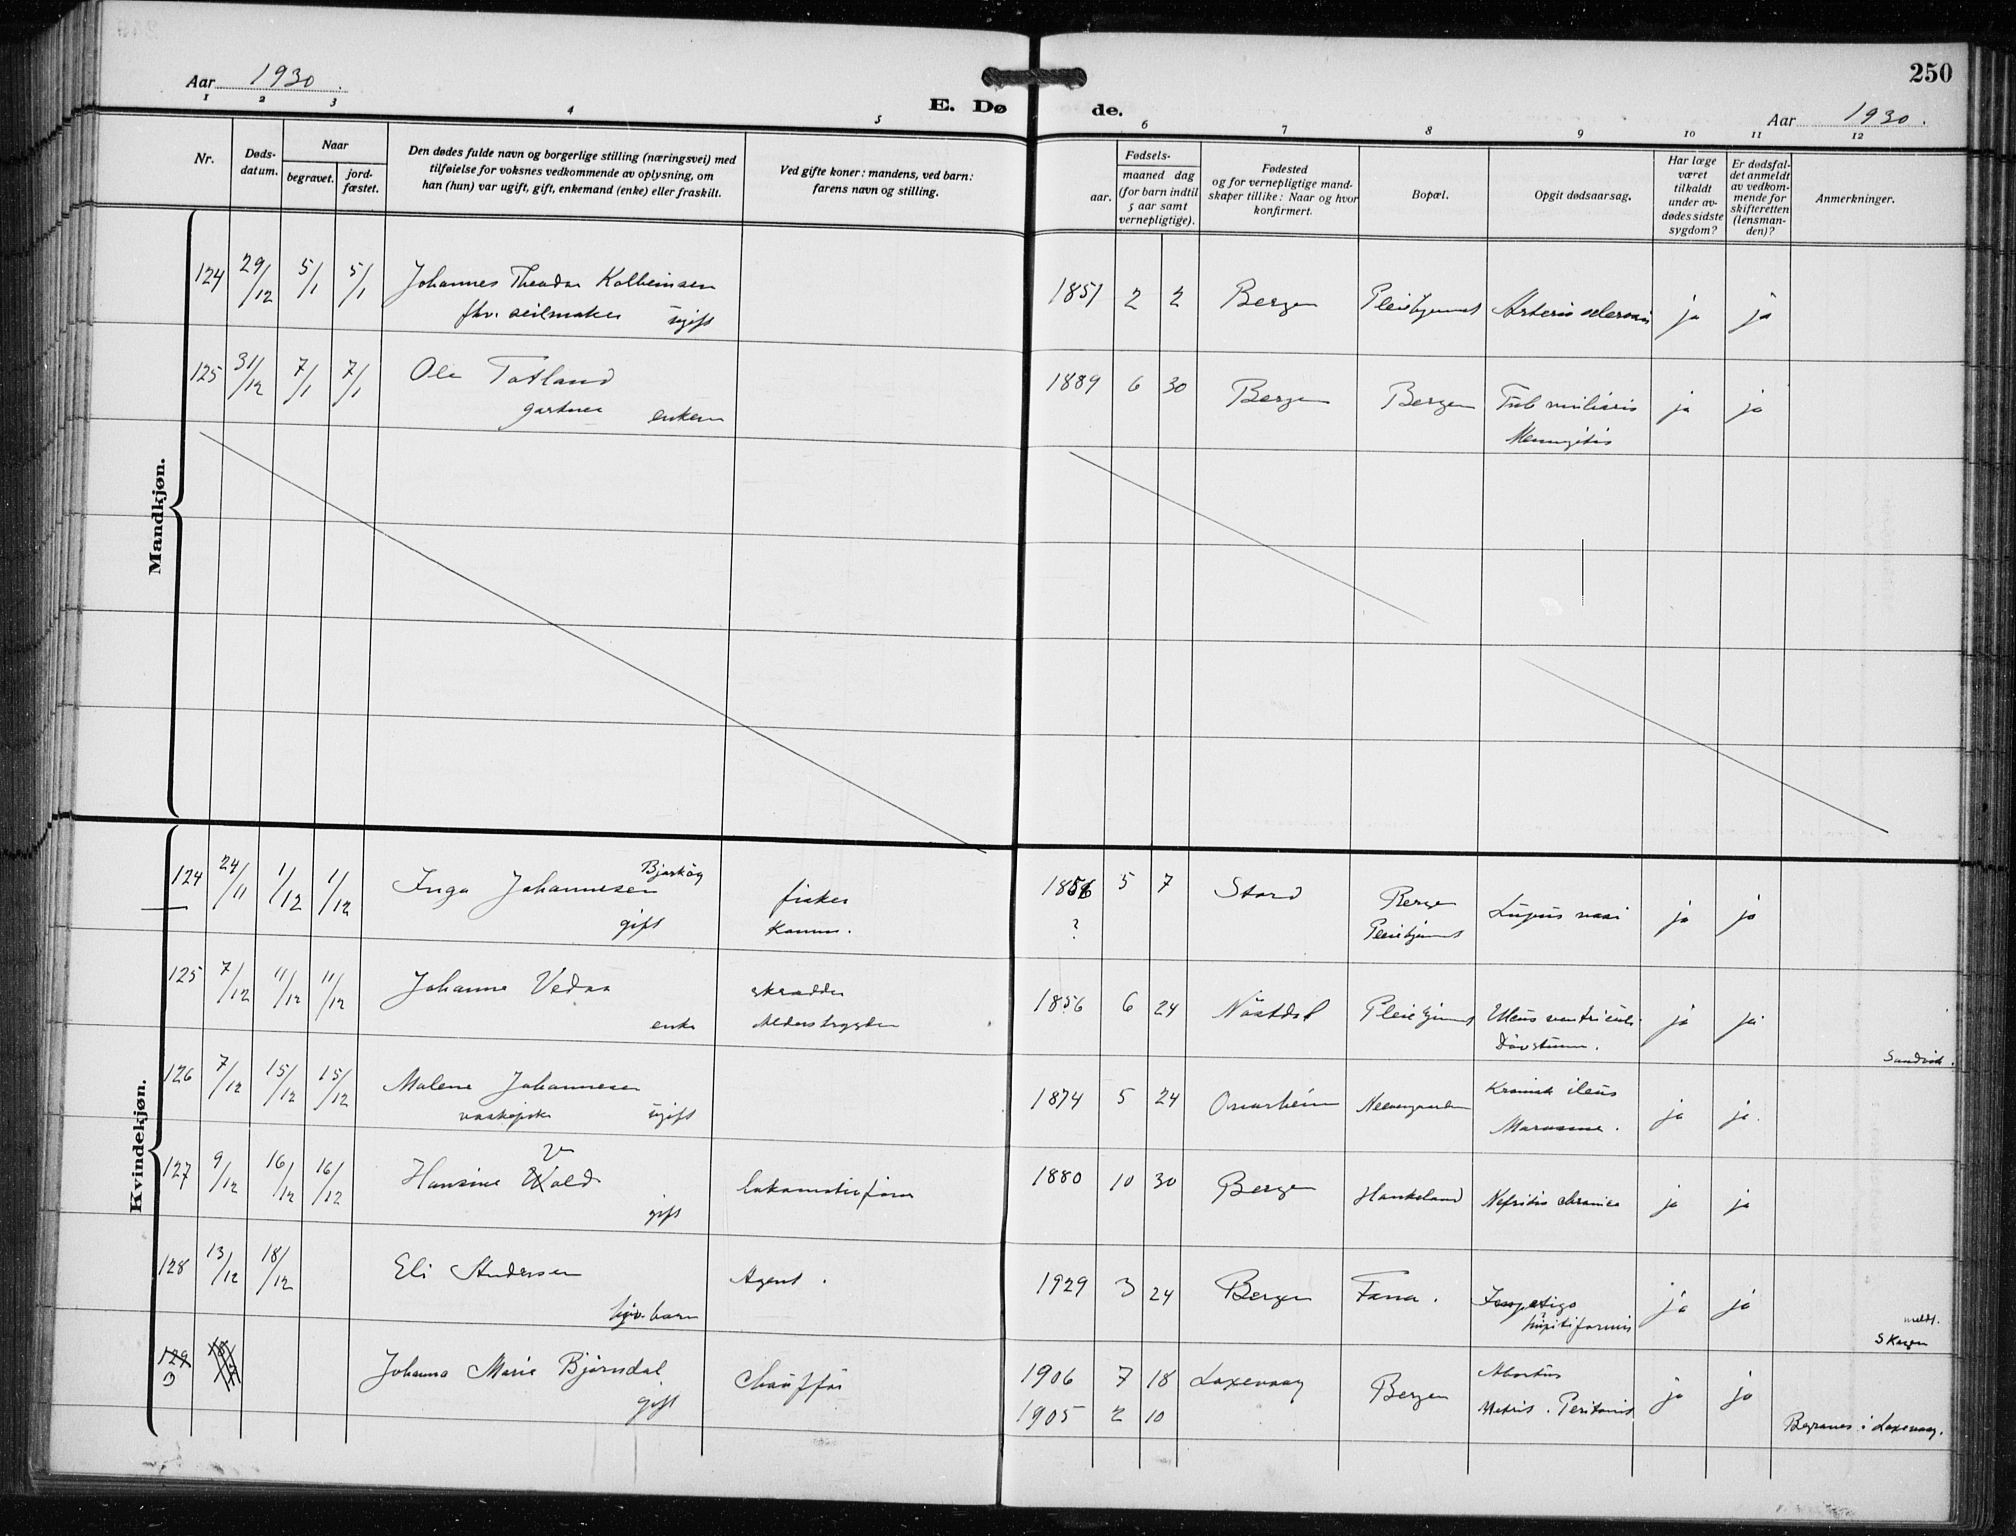 250
Aar 1930.
E. Dø de.
Aar 1930.
1 2 3 4 5 6 7 8 9 10 11 12
Nr.
Døds-
datum.
Naar
begravet.
jord-
fæstet.
Den dødes fulde navn og borgerlige stilling (næringsvei) med
tilføielse for voksnes vedkommende av oplysning, om
han (hun) var ugift, gift, enkemand (enke) eller fraskilt.
Ved gifte koner: mandens, ved barn:
farens navn og stilling.
Fødsels-
aar. maaned dag
(for barn indtil
5 aar samt
vernepligtige).
Fødested
og for vernepligtige mand-
skaper tillike: Naar og hvor
konfirmert.
Bopæl.
Opgit dødsaarsag.
Har læge
været
tilkaldt
under av-
dødes sidste
sygdom?
Er dødsfal-
det anmeldt
av vedkom-
mende for
skifteretten
(lensman-
den)?
Anmerkninger.
Mandkjøn.
124 29/12 5/1 5/1 Johannes Theodor Kolbeinsen 1851 2 2 Bergen Pleiehjemmet ja ja
fhv. seilmaker ugift
125 31/12 7/1 7/1 Ole Totland 1889 6 30 Bergen Bergen Tub miliaris ja ja
gartner enkem
Meningitis
Kvindekjøn.
124 24/11 1/12 1/12 Inga Johannesen 5 7 Stord Bergen Lupus ja ja
gift
fisker
?
Pleiehjemmet
125 7/12 11/12 11/12 Johanne Vedaa skrædder 1856 6 24 Pleiehjemmet Ulcus ventriculi ja ja
enke
Døvstum.
Sandvik.
126 7/12 15/12 15/12 Malene Johannesen 1874 5 24 Onarheim Kronisk ileus ja ja.
ugift
127 9/12 16/12 16/12 Hansine Wold 1880 10 30 Bergen Haukeland Nefritis chronica ja ja
V
gift
128 13/12 18/12 Eli Andersen Agent. 1929 3 24 Bergen Fana. Impetigo ja ja
barn
meldt.
Skagen
129 Johanna Marie Bjørnsdal Chauffør 1906 7 18 Laxevaag Bergen Abortus ja ja
3
gift
1905 2 10
Metrit. Peritonit
Begraves i Laxevaag.